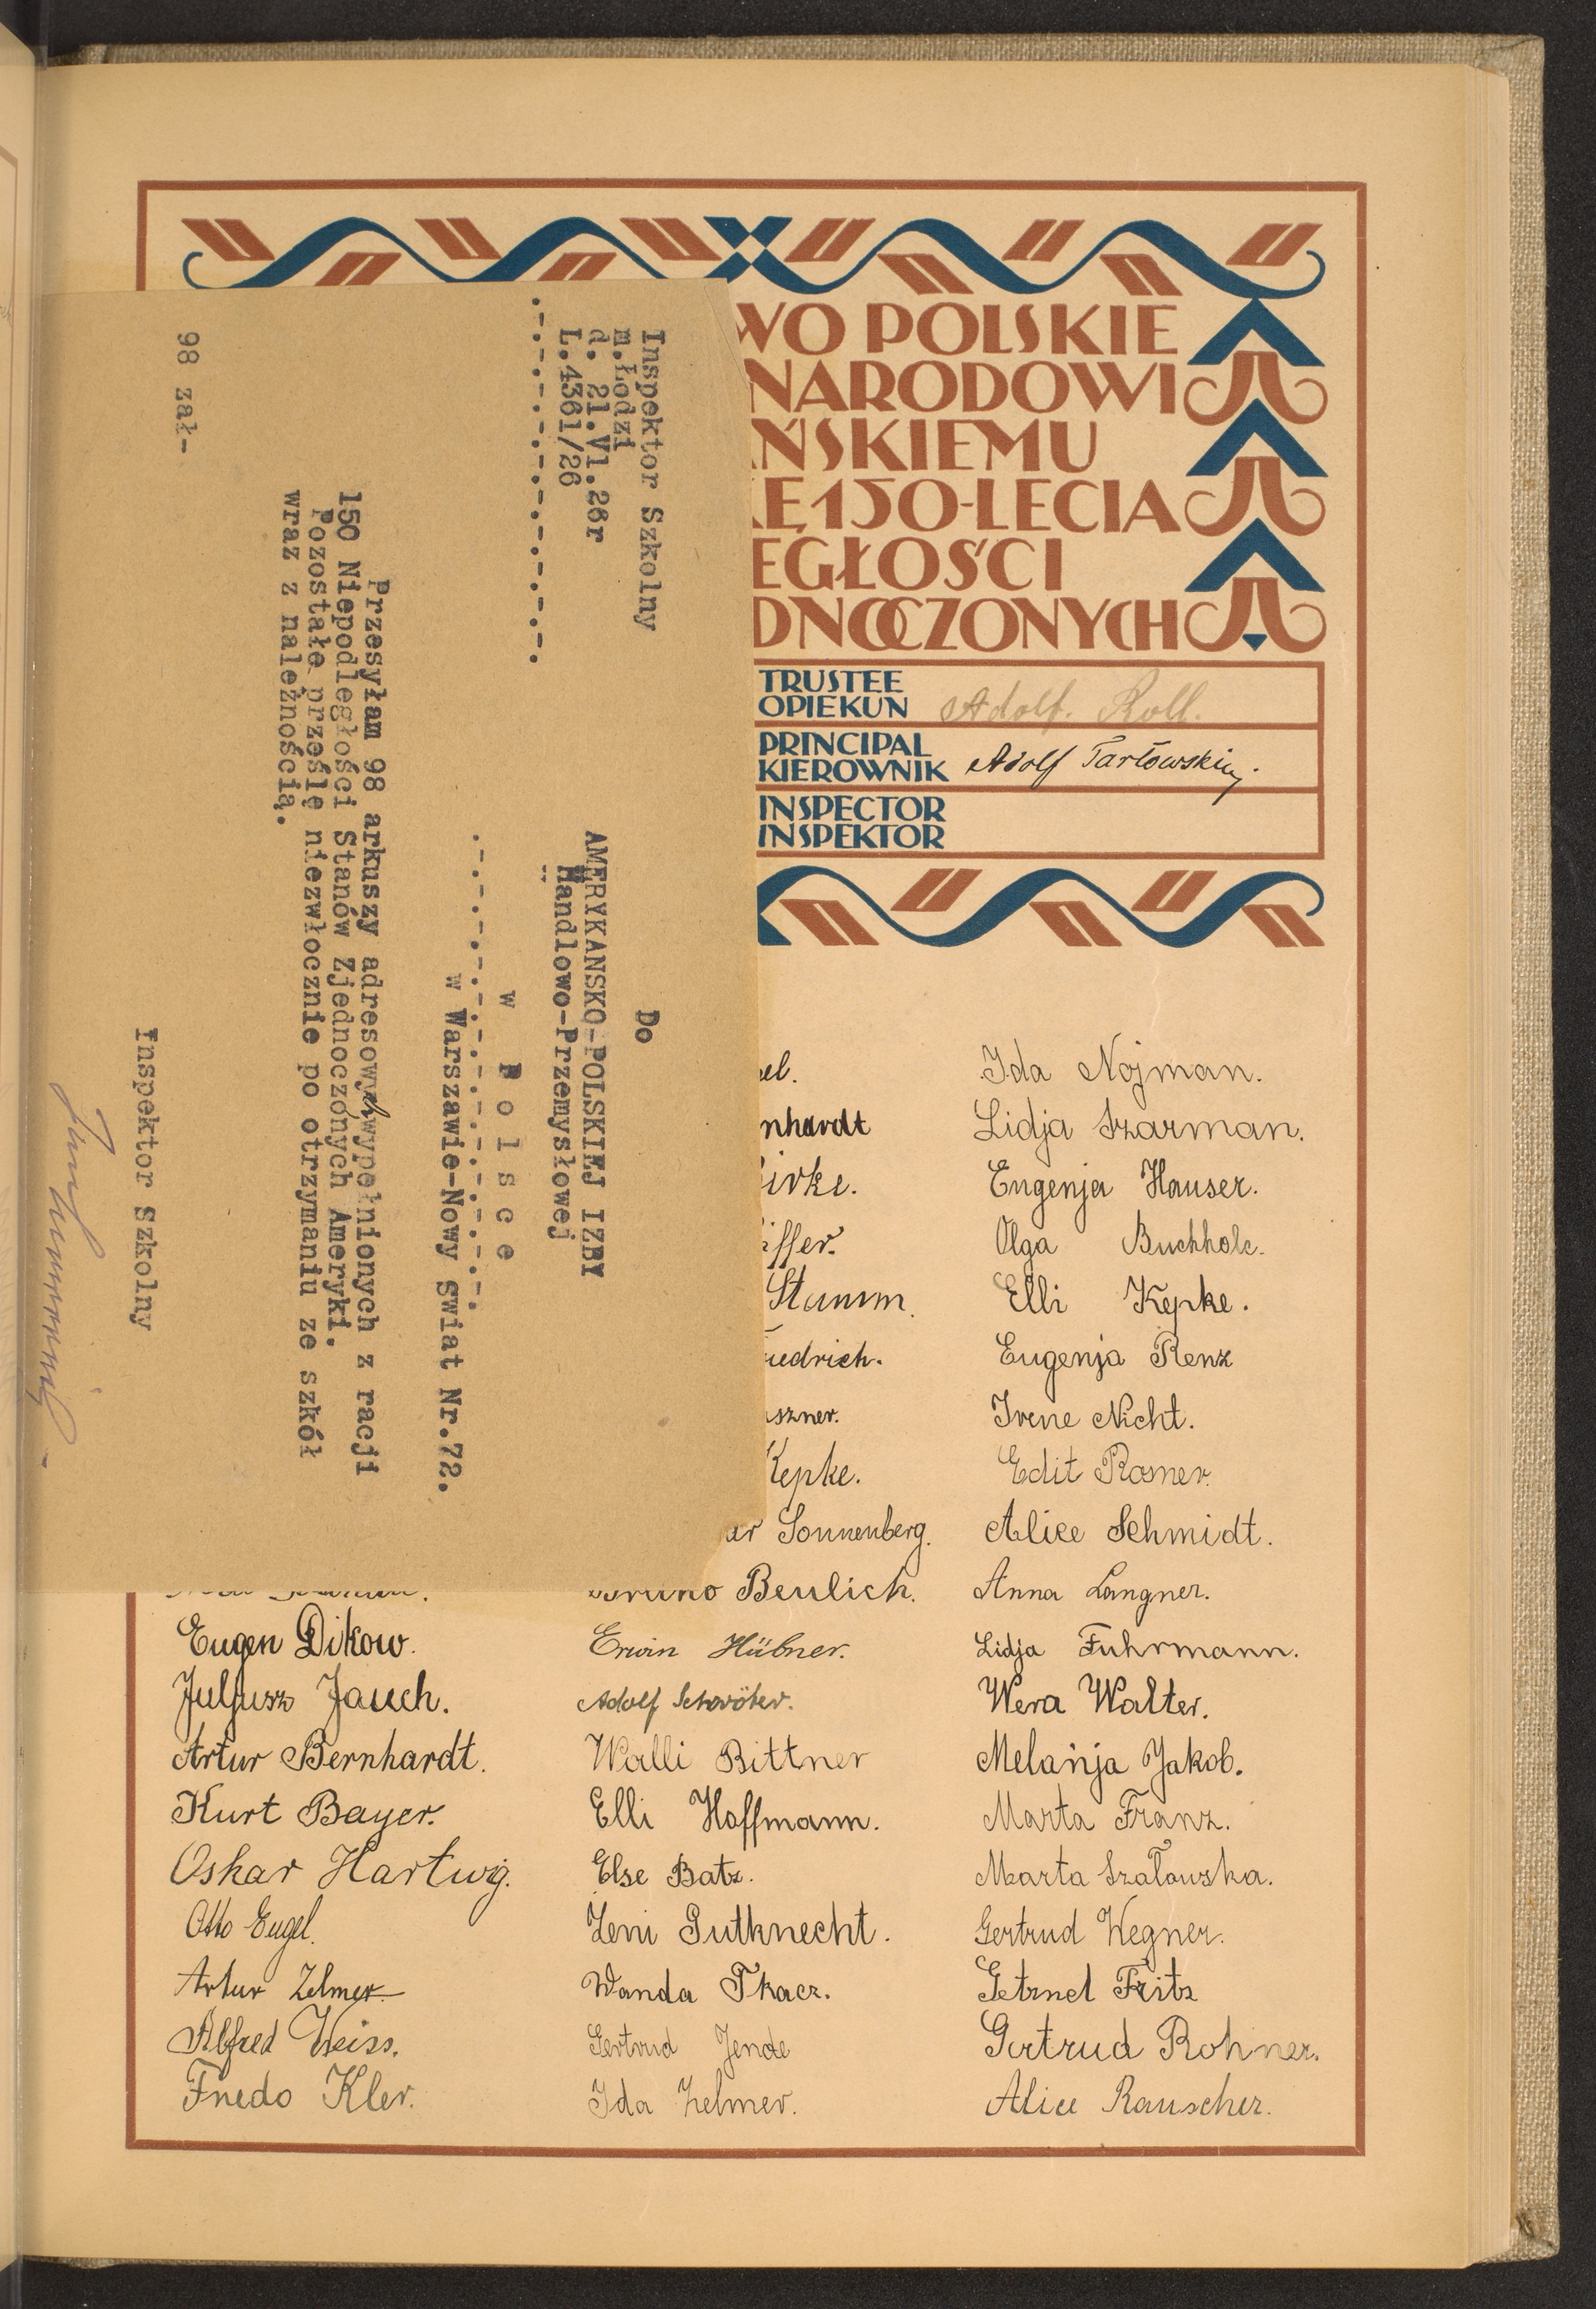 WO POLSKIE
NARODOWI
ŃSKIEMU
Ę 150-LECIA
EGŁOŚCI
DNOCZONYCH
TRUSTEE
OPIEKUN
Adolf. Roll.
PRINCIPAL
KIEROWNIK
Adolf Tarłowski
INSPECTOR
INSPEKTOR
Inspektor Szkolny
m.Łodzi
d. 21.VI.26r
L.4361/26
.-.-.-.-.-.-.-.-.-.-.-.-.-.
Do
AMERYKANSKO-POLSKIEJ IZBY
Handlowo-Przemysłowej
w Polsce
.-.-.-.-.-.-.-.-.-.-.-.-.-.-.-.-.
w Warszawie-Nowy Swiat Nr.72.
Przesyłam 98 arkuszy adresowych wypełnionych z racji
150 Niepodległości Stanów Zjednoczonych Ameryki.
Pozostałe prześlę niezwłocznie po otrzymaniu ze szkół
wraz z należnością.
98 zał-
Inspektor Szkolny
el.
nhardt
irke.
ffer.
Stumm.
iedrich.
szner.
Kepke.
ar Sonnenberg.
Bruno Beulich.
Ida Nojman.
Lidja Szarman.
Eugenja Hauser.
Olga Buchholc.
Elli Kepke.
Eugenja Renz
Irene Nicht.
Edit Rosner.
Alice Schmidt.
Anna Langner.
Eugen Dikow.
Juljusz Jauch.
Artur Bernhardt.
Kurt Bayer.
Oskar Hartwig.
Otto Engel.
Artur Zelmer
Alfred Weiss.
Fredo Kler.
Erwin Hübner.
Adolf Schröter.
Walli Bittner
Elli Hoffmann.
Else Batz.
Zeni Gutknecht.
Wanda Tkacz.
Gertrud Jende
Ida Zelmer.
Lidja Fuhrmann.
Wera Walter.
Melanja Jakob.
Marta Franz.
Marta Szatowska.
Gertrud Wegner.
Getrud Fritz
Gertrud Rohner.
Alice Rauscher.